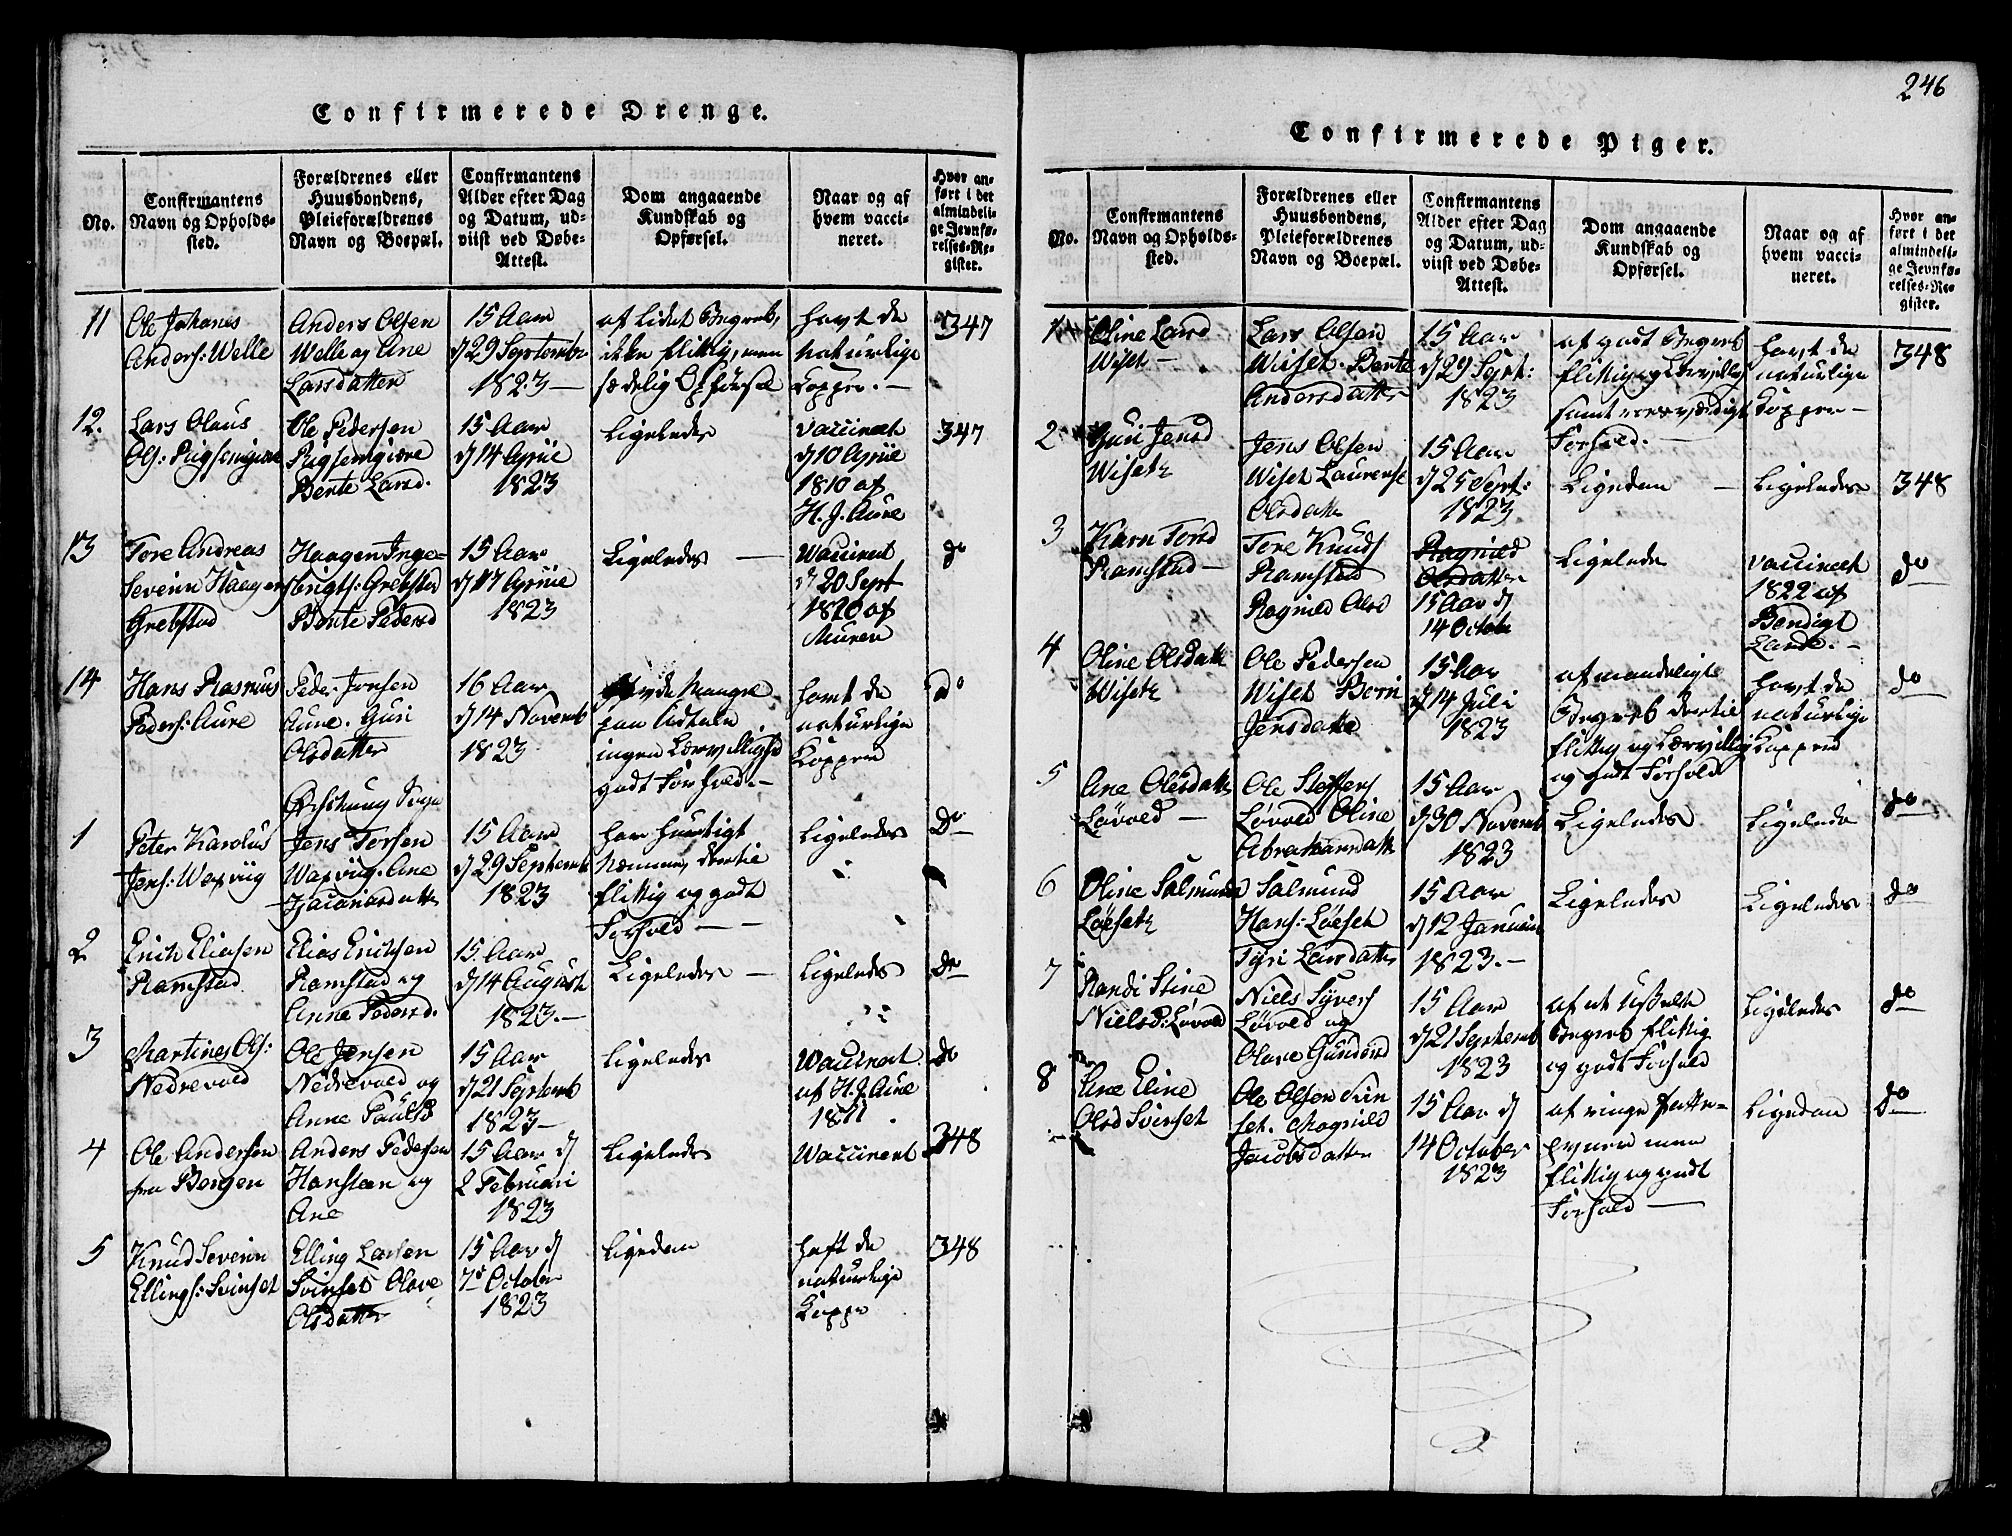 246
Confirmerede Drenge.
No.
Confirmantens
Navn og Opholds-
sted.
Forældrenes eller
Huusbondens,
Pleieforældrenes
Navn og Boepæl.
Confirmantens
Alder efter Dag
og Datum, ud-
viist ved Døbe-
Attest.
Dom angaaende
Kundskab og
Opførsel.
Naar og af
hvem vacci-
neret.
Hvor an-
ført i det
almindeli-
ge Jevnfø-
relses-Re-
gister.
11
Ole Johanes
Anders: Welle
Anders Olsen
Welle og Ane
Larsdatter
15 Aar
d 29 Septembr
1823
af lidet Begreb,
ikke flittig, men
sædelig Opførsel
havt de
naturlige
Kopper.
347
12.
Lars Olaus
Ols:
Ole Pedersen
Bente Larsd.
15 Aar
d 14 April
1823
Ligeledes
vaccineret
d 10 April
1810 af
H. J. Aure
347
13
Tore Andreas
Severin Haagens
Grebstad
Haagen Inge-
Grebstad
Bente Pedersd
15 Aar
d 17 April
1823
Ligeledes
Vaccineret
d 20 Sept
1810 af
Muren
do
14
Hans Rasmus
Peders: Aure
Peder Jonsen
Aure. Guri
Olsdatter
16 Aar
d 14 Novemb
1823
ingen Lærvillighed
godt Forhold.
havt de
naturlige
Kopper
do
Ørschoug Sogn
1
Peter Karolus
Jens: Waxviig
Jens Torsen
Waxviig. Ane
15 Aar
d 29 Septemb
1823
har hurtigt
Nemme, dertil
flittig og godt
Forhold
Ligeledes
do
2
Erich Eliasen
Ramstad
Elias Erichsen
Ramstad og
Anne Pedersd.
15 Aar
d 14 August
1823.
Ligeledes
Ligeledes
do
3
Martines Ols:
Nedrevold
Ole Jensen
Nedrevold og
Anne Paulsd
15 Aar
d 21 Septemb
1823
Ligeledes
Vaccineret
af H. J. Aure
1811.
do
4
Ole Andersen
fra Bergen
Anders Pedersen
og
Ane
15 Aar d
2 Februari
1823
Ligeledes
Vaccineret
348
5
Knud Severin
Ellings: Svinset
Elling Larsen
Svinset Olave
Olsdatter
15 Aar d
7de October
1823
Ligedan
haft de
naturlige
Kopper
348
Confirmerede Piger.
No.
Confirmantens
Navn og Opholds-
sted.
Forældrenes eller
Huusbondens,
Pleieforældrenes
Navn og Boepæl.
Confirmantens
Alder efter Dag
og Datum, ud-
viist ved Døbe-
Attest.
Dom angaaende
Kundskab og
Opførsel.
Naar og af
hvem vacci-
neret.
Hvor an-
ført i det
almindeli-
ge Jevnfø-
relses-Re-
gister.
1
Oline Larsd
Wiset
Lars Olsen
Wiset. Bente
Andersdatter
15 Aar
d 29 Sept:
1823
af godt Begreb
flittig og Lærvillig
samt
Forhold.
havt de
naturlige
Kopper
348
2
Guri Jensd
Wiset
Jens Olsen
Wiset Laurense
Olsdatter
15 Aar
d 25 Sept:
1823
Ligedan
Ligeledes
348
3
Karn Torsd
Ramstad
Tore Knuds
Ramstad
Ragnild Olsd
Ragnild
Olsdatter
15 Aar d
14 Octobr
Ligeledes
vaccineret
1822 af
Bendigt
Lande.
do
4
Oline Olsdatt
Wiset
Ole Pedersen
Wiset Beri
Jensdatter
15 Aar
d 14 Juli
1823
af maadeligt
Begreb dertil
flittig og Lærvillig
og godt Forhold
havt de
naturlige
Kopper
do
5
Ane Olesdatt
Løvold
Ole Steffens
Løvold Oline
Abrahamdatt
15 Aar
d 30 Novemb
1823
Ligeledes
Ligeledes
do
6
Oline Salmunds
Løeset
Salmund
Hans: Løeset
Tyri Larsdatter
15 Aar
d 12 Januari
1823.
Ligeledes
Ligeledes
do
7
Randi Stine
Nielsd: Løvold
Niels Syvers
Løvold og
Olave Gundersd
15 Aar
d 21 Septemb
1823
af et
Begreb flittig
og godt Forhold
Ligeledes
do
8
Ane Eline
Olsd Svinset
Ole Olsen Svin
set. Magnild
Jacobsdatter
15 Aar d
14 October
1823
af ringe Fatte-
evner men
flittig og godt
Forhold
Ligedan
do